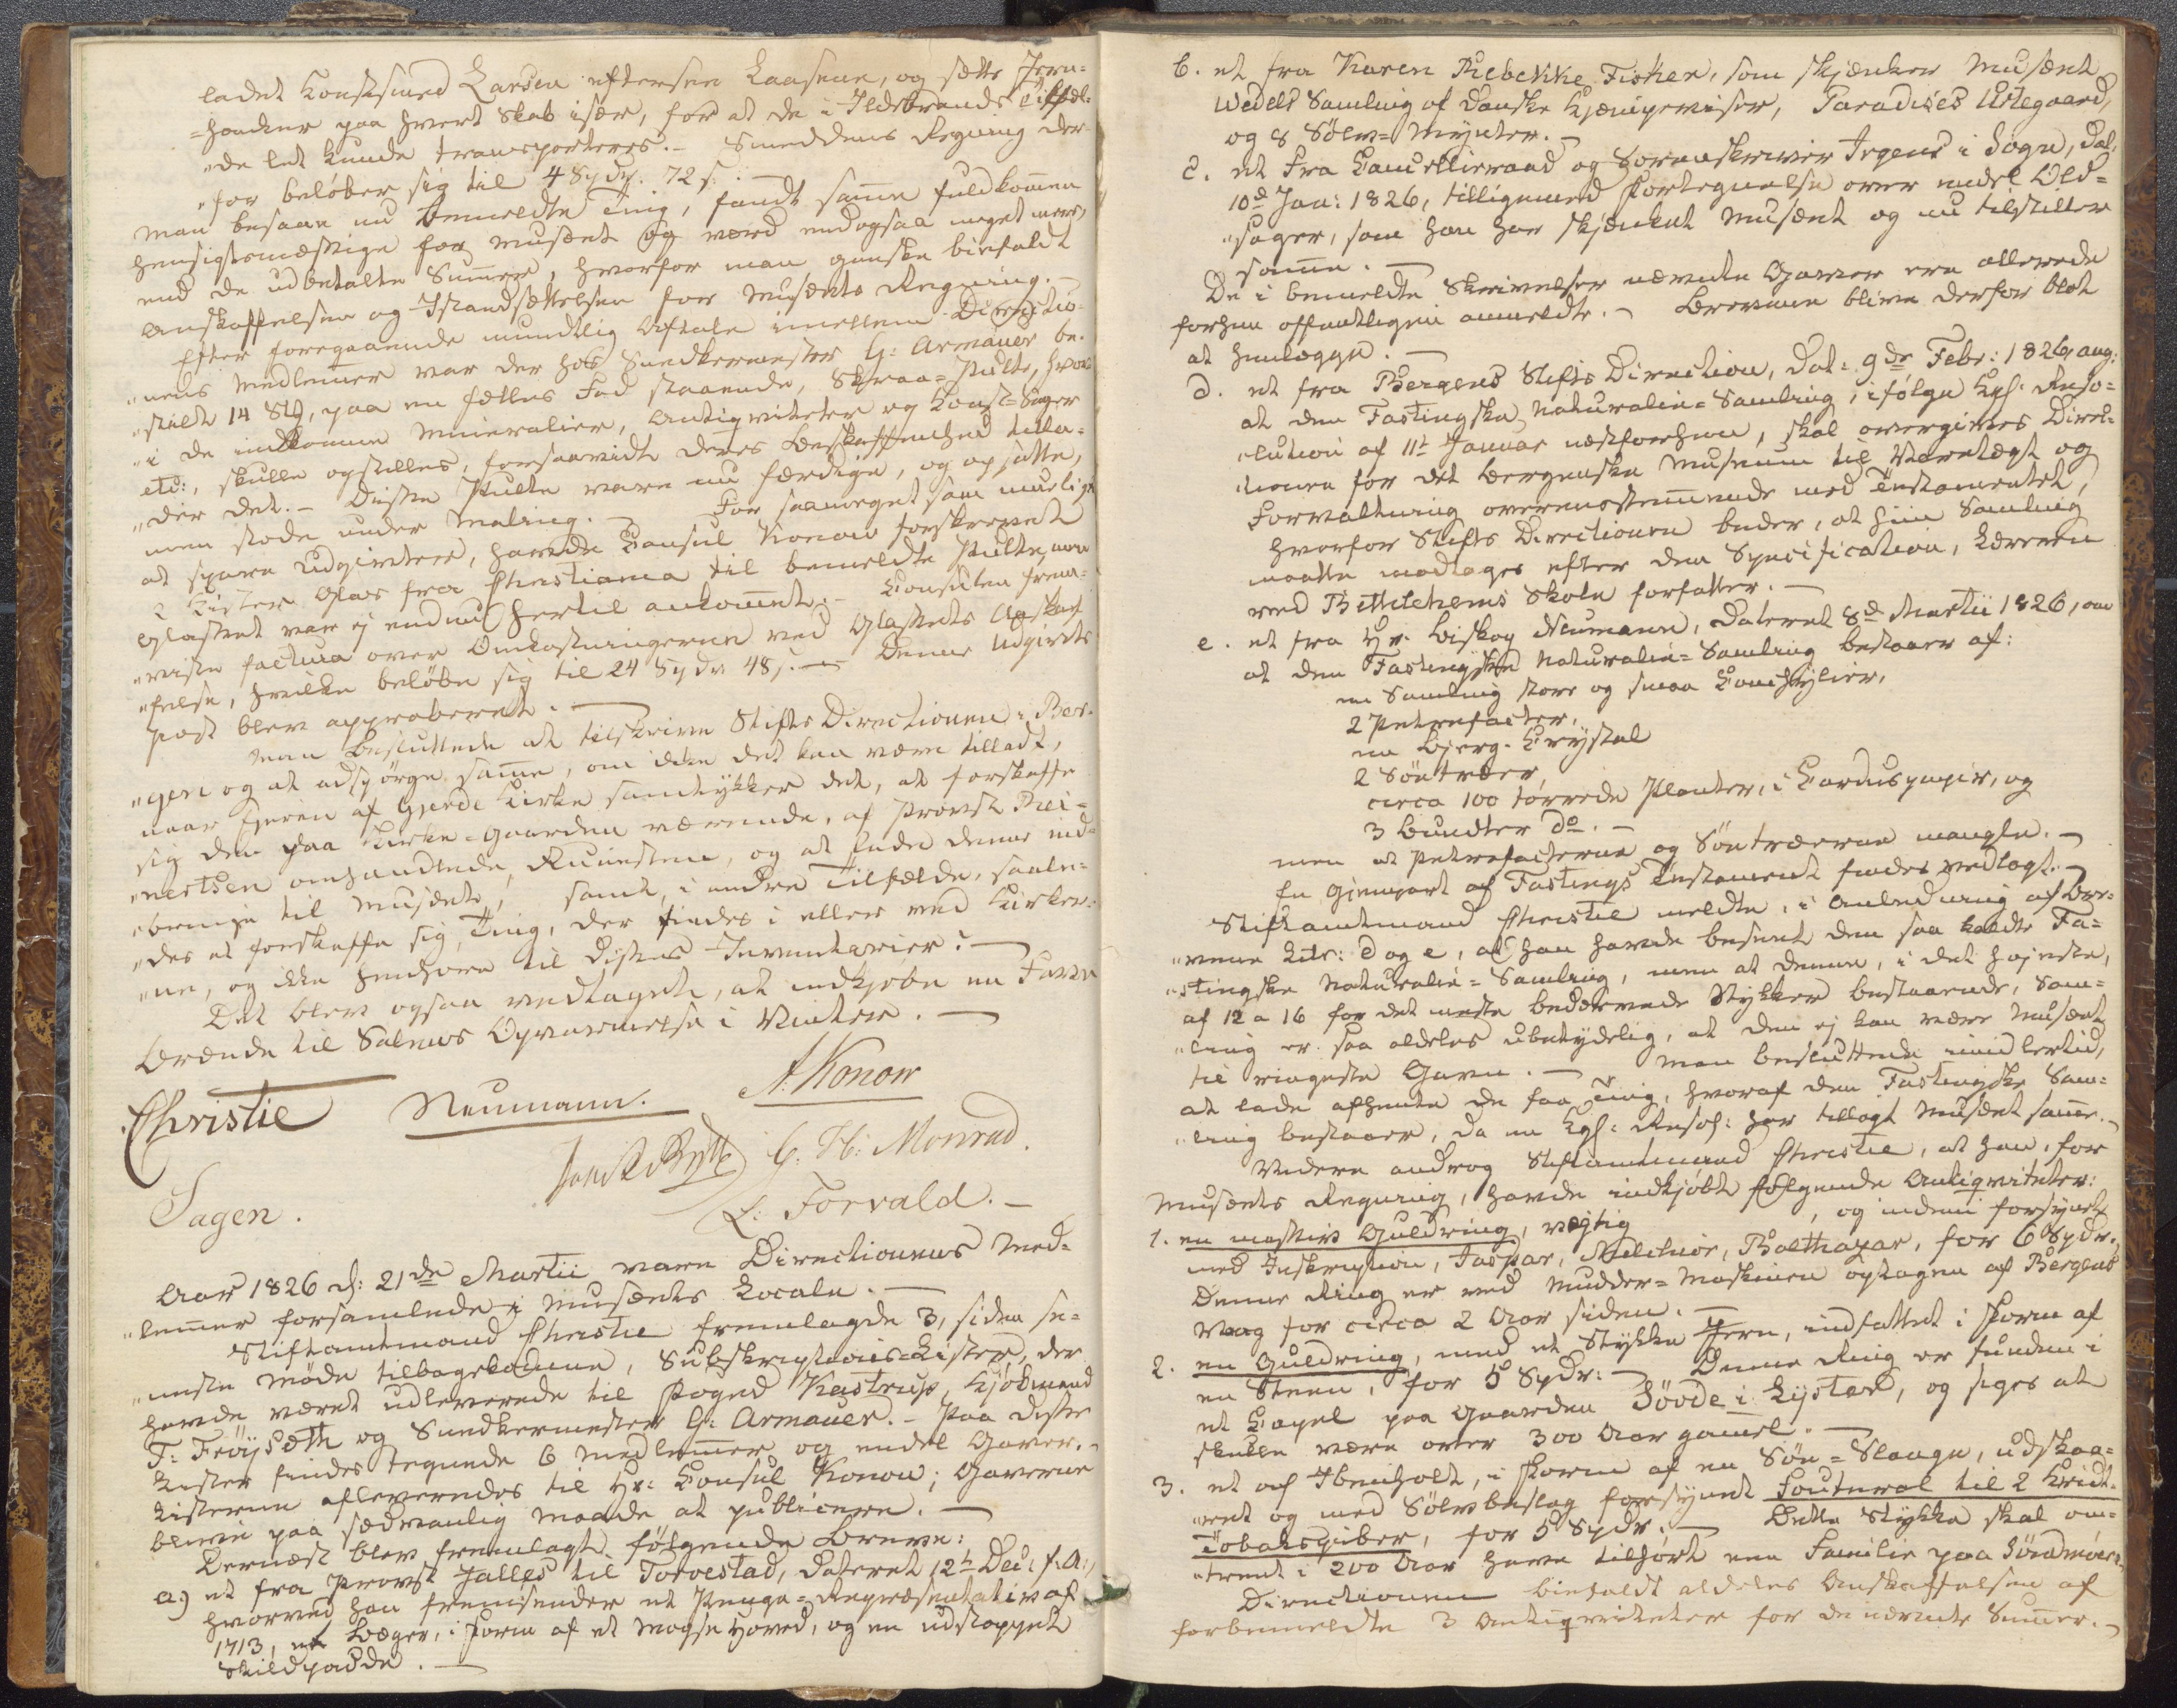 ladet Konstsmed Larsen eftersee Laasene, og sætte Jern-
=hanker paa hvert Skab især, for at de i Ildebrands Tilfæl-
"de let kunde transporteres. – Smeddens Regning der-
"for beløber sig til 4 Spdr. 72 s.
Man besaae nu bemeldte Ting, fandt samme fuldkommen
hensigtsmæssige for Musæet og værd endogsaa meget meer,
end de udbetalte Summer, hvorfor man ganske bifaldt
Anskaffelsen og Istandsættelsen for Musæets Regning. –
Efter foregaaende mundtlig Aftale imellem Directio-
"nens Medlemmer var der hos Snedkermester G: Armauer be-
"stilt 14 Stk, paa en fælles Fod staaende, Skraa-Pulte, hvor-
"i de indkomne Mineralier, Antiqviteter og Konst-Sager
etc:, skulle opstilles, forsaavidt deres Beskaffenhed tilla-
"der det. – Disse Pulte vare nu færdige, og opsatte,
men stode under Maling. – For saameget som mueligt
at spare Udgivter, havde Consul Konow forskrevet
2 Kister Glas fra Christiania til bemeldte Pulte, men
Glasset var ej endnu hertil ankommet. – Consulen frem-
"viste Factura over Omkostningerne ved Glassets Anskaf-
"felse, hvilke beløbe sig til 24 Spdr 48 s. – Denne Udgivts
Post blev approberet. –
Man besluttede at tilskrive Stifts Directionen i Ber-
"gen og at adspörge samme, om ikke det kan være tilladt,
naar Ejeren af Gjerde Kirke samtykker det, at forskaffe
sig den paa Kirke-Gaarden værende, af Provst Rei-
"nertsen omhandlede, Runesteen, og at lade denne ind-
"bringe til Musæet, samt, i andre Tilfælde, saale-
"des at forskaffe sig, Ting, der findes i eller ved Kirker-
"ne, og ikke henhøre til disses Inventarier. –
Det blev ogsaa vedtaget, at indkjøbe en Favn
Brænde til Salens Opvarmelse i Vinter. –
Christie Neumann. A. Konow
C. H: Monrad.
Sagen. L: Forvald. –
Aar 1826 d: 21de Martii vare Directionens Med-
"lemmer forsamlede i Musæets Locale. –
Stiftamtmand Christie fremlagde 3, siden se-
"neste Møde tilbagekomne, Subskriptions-Lister, der
havde været udleverede til Foged Kastrup, Kjöbmand
F: Fröysæth og Snedkermester G: Armauer. – Paa disse
Lister findes tegnede 6 Medlemmer og endel Gaver. –
Listerne afleveredes til Hr: Consul Konow; Gaverne
bleve paa sædvanlig Maade at publicere. –
Dernæst blev fremlagt følgende Breve:
a.) et fra Provst Juell til Torvestad, dateret 12te Dec: f. A:,
hvorved han fremsender et Penge-Repræsentativ af
1713, et Bæger, i Form af et Moses Hoved, og en udstoppet
Skildpadde. –
b. et fra Karen Rebekke Fisker, som skjænker Musæet
Wedels Samling af Danske Kjæmpeviser, Paradises Urtegaard,
og 8 Sølv-Mynter. –
c. et fra Cancellieraad og Sorenskriver Irgens i Sogn, dat:
10de Jan: 1826, tilligemed Fortegnelse over endel Old-
"sager, som han har skjænket Musæet og nu tilstiller
samme. –
De i bemeldte Skrivelser nævnte Gaver ere allerede
forhen offentligen anmeldte. – Brevene bleve derfor blot
at henlægge. –
d. et fra Bergens Stifts Direction, dat: 9de Febr: 1826, ang:
at den Fastingske Naturalie-Samling, ifølge Kgl: Reso-
"lution af 11te Januar nestforhen, skal overgives Direc-
"tionen for det Bergenske Museum til Varetægt og
Forvaltning overensstemmende med Testamentet,
hvorfor Stifts Directionen beder, at hiin Samling
maatte modtages efter den Specification, Læreren
ved Bethlehems Skole forfatter. –
e. et fra Hr. Biskop Neumann, dateret 8de Martii 1826, om
at den Fastingske Naturalie-Samling bestaaer af:
en Samling store og smaa Conchylier,
2 Petrefacter,
en Bjerg-Crystal
2 Söetræer,
circa 100 törrede Planter, i Carduspapir, og
3 Bundter do. –
men at Petrefacterne og Söetræerne mangle. –
En Gjenpart af Fastings Testament findes vedlagt. –
Stiftamtmand Christie meldte, i Anledning af Bre-
"vene Litr: d og e, at han havde beseet den saa kaldte Fa-
"stingske Naturalie-Samling, men at denne, i det højeste,
af 12 a 16 for det meste bedærvede Stykker bestaaende, Sam-
"ling er saa aldeles ubetydelig, at den ej kan være Musæet
til ringeste Gavn. – Man besluttede imidlertid,
at lade afhente de faa Ting, hvoraf den Fastingske Sam-
"ling bestaaer, da en Kgl: Resol: har tillagt Musæet samme. –
Videre androg Stiftamtmand Christie, at han, for
Musæets Regning, havde indkjøbt følgende Antiqviteter:
1. en massiv Guldring, vægtig , og indeni forsynet
med Inskription, Jaspar, Melchior, Balthazar, for 6 Spdr.
Denne Ring er ved Mudder-Maskinen optagen af Bergens
Vaag for circa 2 Aar siden. –
2. en Guldring, med et Stykke Jern, indfattet i Form af
en Steen, for 5 Spdr: – Denne Ring er funden i
et Capel paa Gaarden Döode i Lyster, og siges at
skulle være over 300 Aar gammel. –
3. et af Ibenholt, i Form af en Söe-Slange, udskaa-
"ret og med Sölvbeslag forsynet Foutteral til 2 Kridt-
Tobakspiber, for 5 Spdr. – Dette Stykke skal om-
"trent i 200 Aar have tilhört een Familie paa Söndmöer.
Directionen bifaldt aldeles Anskaffelsen af
forbemeldte 3 Antiqviteter for de nævnte Summer. –